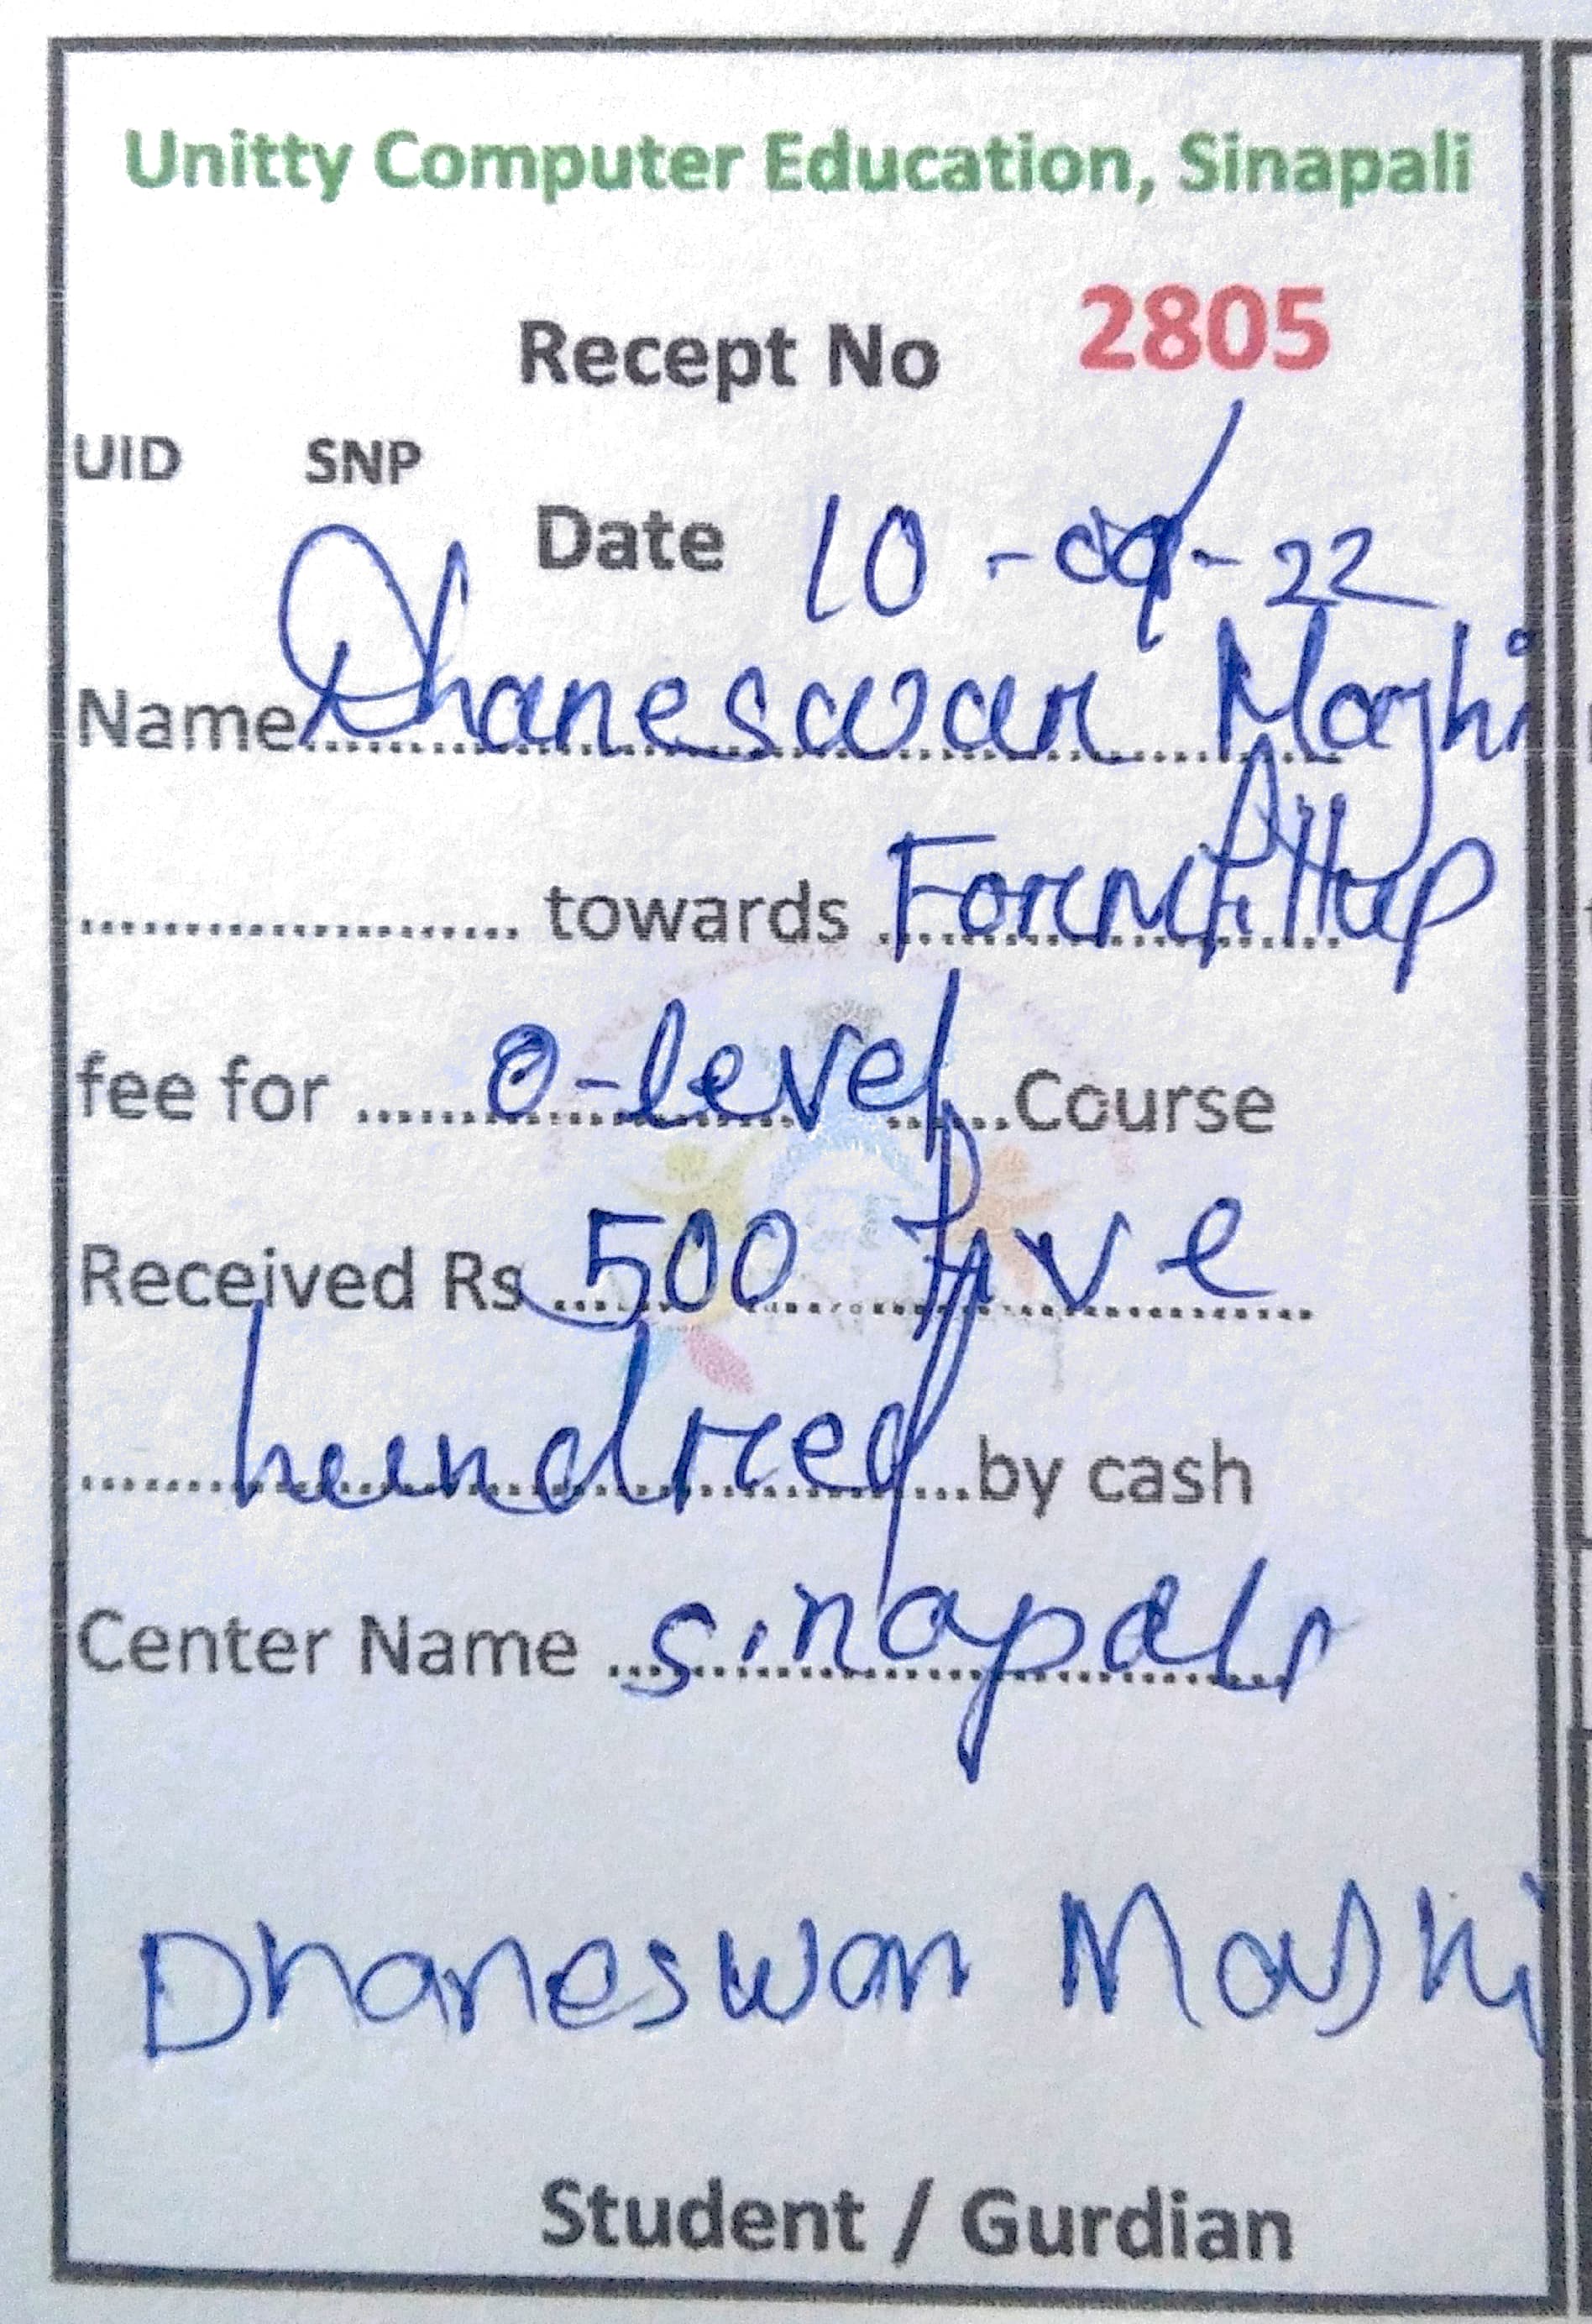 Unitty Computer Education, Sinapali
Recept No 2805
UID SNP
Date 10-09-22
Name Dhaneswar Majhi
towards Formfillup
fee for O-level Course
Received Rs 500 Five
hundred by cash
Center Name Sinapali
Dhaneswar Majhi
Student / Gurdian